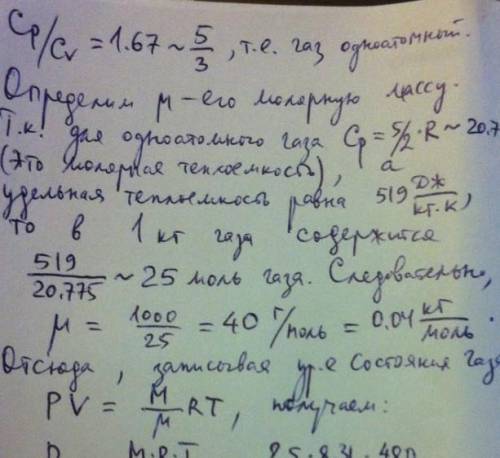 Cp/Cv = 1.67 ~ 5/3, т.е. газ одноатомный.
Определим μ – его молярную массу.
Т.к. для одноатомного газа Cp = 5/2·R ~ 20.7
(это молярная теплоемкость), а
удельная теплоемкость равна 519 Дж/кг·К,
то в 1 кг газа содержится
519/20.775 ~ 25 моль газа. Следовательно,
μ = 1000/25 = 40 г/моль = 0.04 кг/моль.
Отсюда, записывая ур.е состояния газа
PV = M/μ RT, получаем:
M·R·T 85·8.31·480